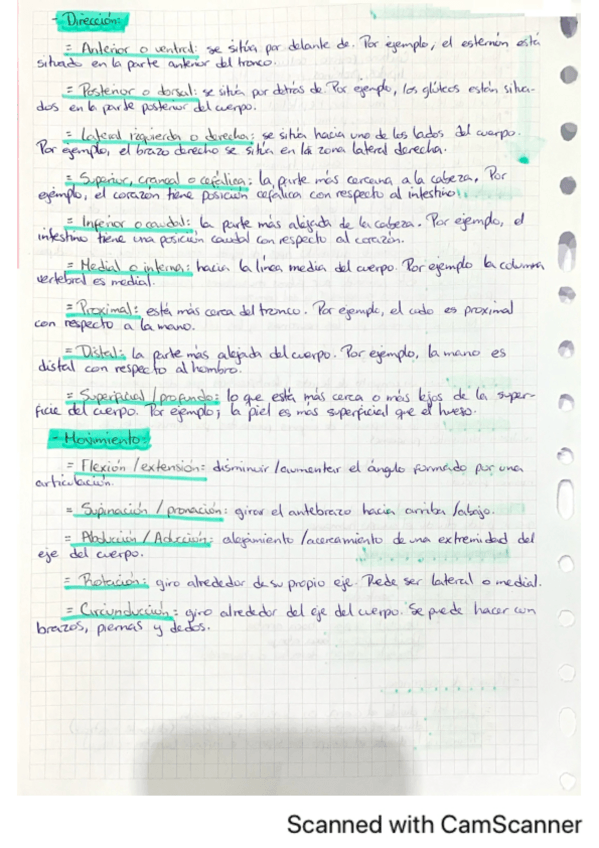 - Dirección:
= Anterior o ventral: se sitúa por delante de. Por ejemplo, el esternón está
situado en la parte anterior del tronco.
= Posterior o dorsal: se sitúa por detrás de. Por ejemplo, los glúteos están situa-
dos en la parte posterior del cuerpo.
= Lateral izquierda o derecha: se sitúa hacia uno de los lados del cuerpo.
Por ejemplo, el brazo derecho se sitúa en la zona lateral derecha.
= Superior, craneal o cefálica: la parte más cercana a la cabeza. Por
ejemplo, el corazón tiene posición cefálica con respecto al intestino.
= Inferior o caudal: la parte más alejada de la cabeza. Por ejemplo, el
intestino tiene una posición caudal con respecto al corazón.
= Medial o interna: hacia la línea media del cuerpo. Por ejemplo la columna
vertebral es medial.
= Proximal: está más cerca del tronco. Por ejemplo, el codo es proximal
con respecto a la mano.
= Distal: la parte más alejada del cuerpo. Por ejemplo, la mano es
distal con respecto al hombro.
= Superficial / profundo: lo que está más cerca o más lejos de la super-
ficie del cuerpo. Por ejemplo, la piel es más superficial que el hueso.
- Movimiento:
= Flexión / extensión: disminuir / aumentar el ángulo formado por una
articulación.
= Supinación / pronación: girar el antebrazo hacia arriba / abajo.
= Abducción / Aducción: alejamiento / acercamiento de una extremidad del
eje del cuerpo.
= Rotación: giro alrededor de su propio eje. Puede ser lateral o medial.
= Circunducción: giro alrededor del eje del cuerpo. Se puede hacer con
brazos, piernas y dedos.
Scanned with CamScanner